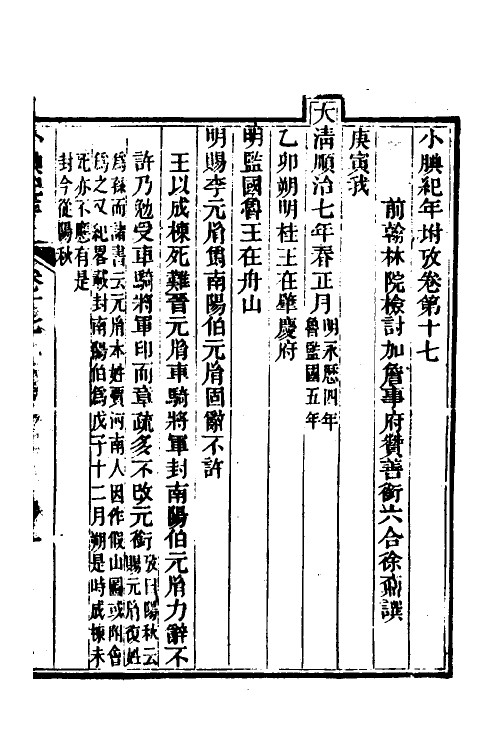 小腆紀年坿攷卷第十七
前翰林院檢討加詹事府贊善銜六合徐鼒譔
庚寅我
大淸順治七年春正月明永厯四年魯監國五年
乙卯朔明桂王在肇慶府
明監國魯王在舟山
明賜李元胤爲南陽伯元胤固辭不許
王以成棟死難晋元胤車騎將軍封南陽伯元胤力辭不
許乃勉受車騎將軍印而章疏多不改元銜攷曰陽秋云賜元胤復姓
爲孫而諸書云元胤本姓賈河南人因作假山圖或附會
爲之又紀畧載封南陽伯爲戊子十二月朔是時成棟未
死亦不應有是
封今從陽秋